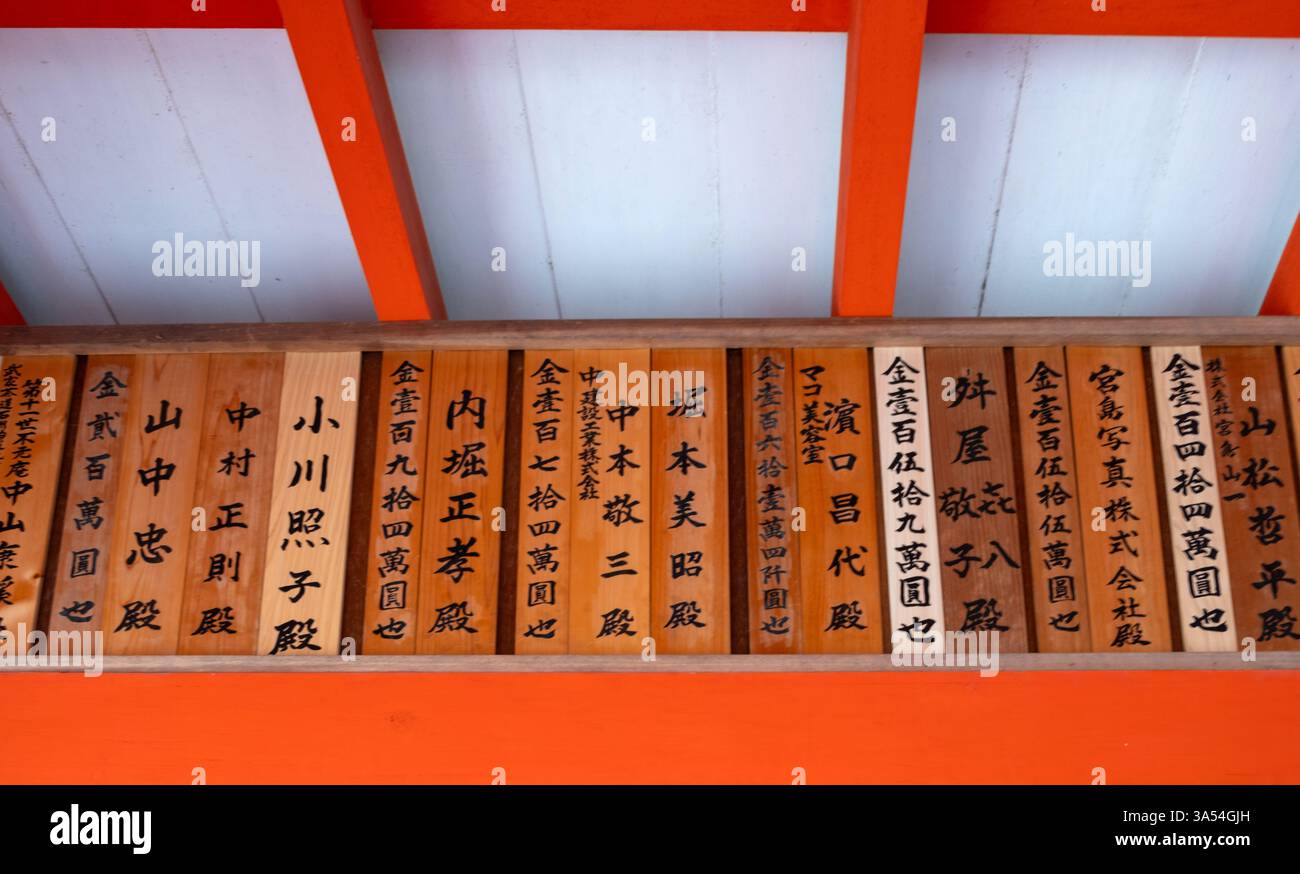 金貳百萬圓也
山中忠殿
中村正則殿
小川照子殿
金壹百九拾四萬圓也
内堀正孝殿
金壹百七拾四萬圓也
中建設工業株式会社
中本敬三殿
堀本美昭殿
金壹百六拾壹萬四阡圓也
マコ美容室
濵口昌代殿
金壹百伍拾九萬圓也
舛屋㐂八
敬子殿
金壹百伍拾伍萬圓也
宮島写真株式会社殿
金壹百四拾四萬圓也
株式会社宮島山一
山松哲平殿
alamy
Image ID: 3A54GJH
www.alamy.com